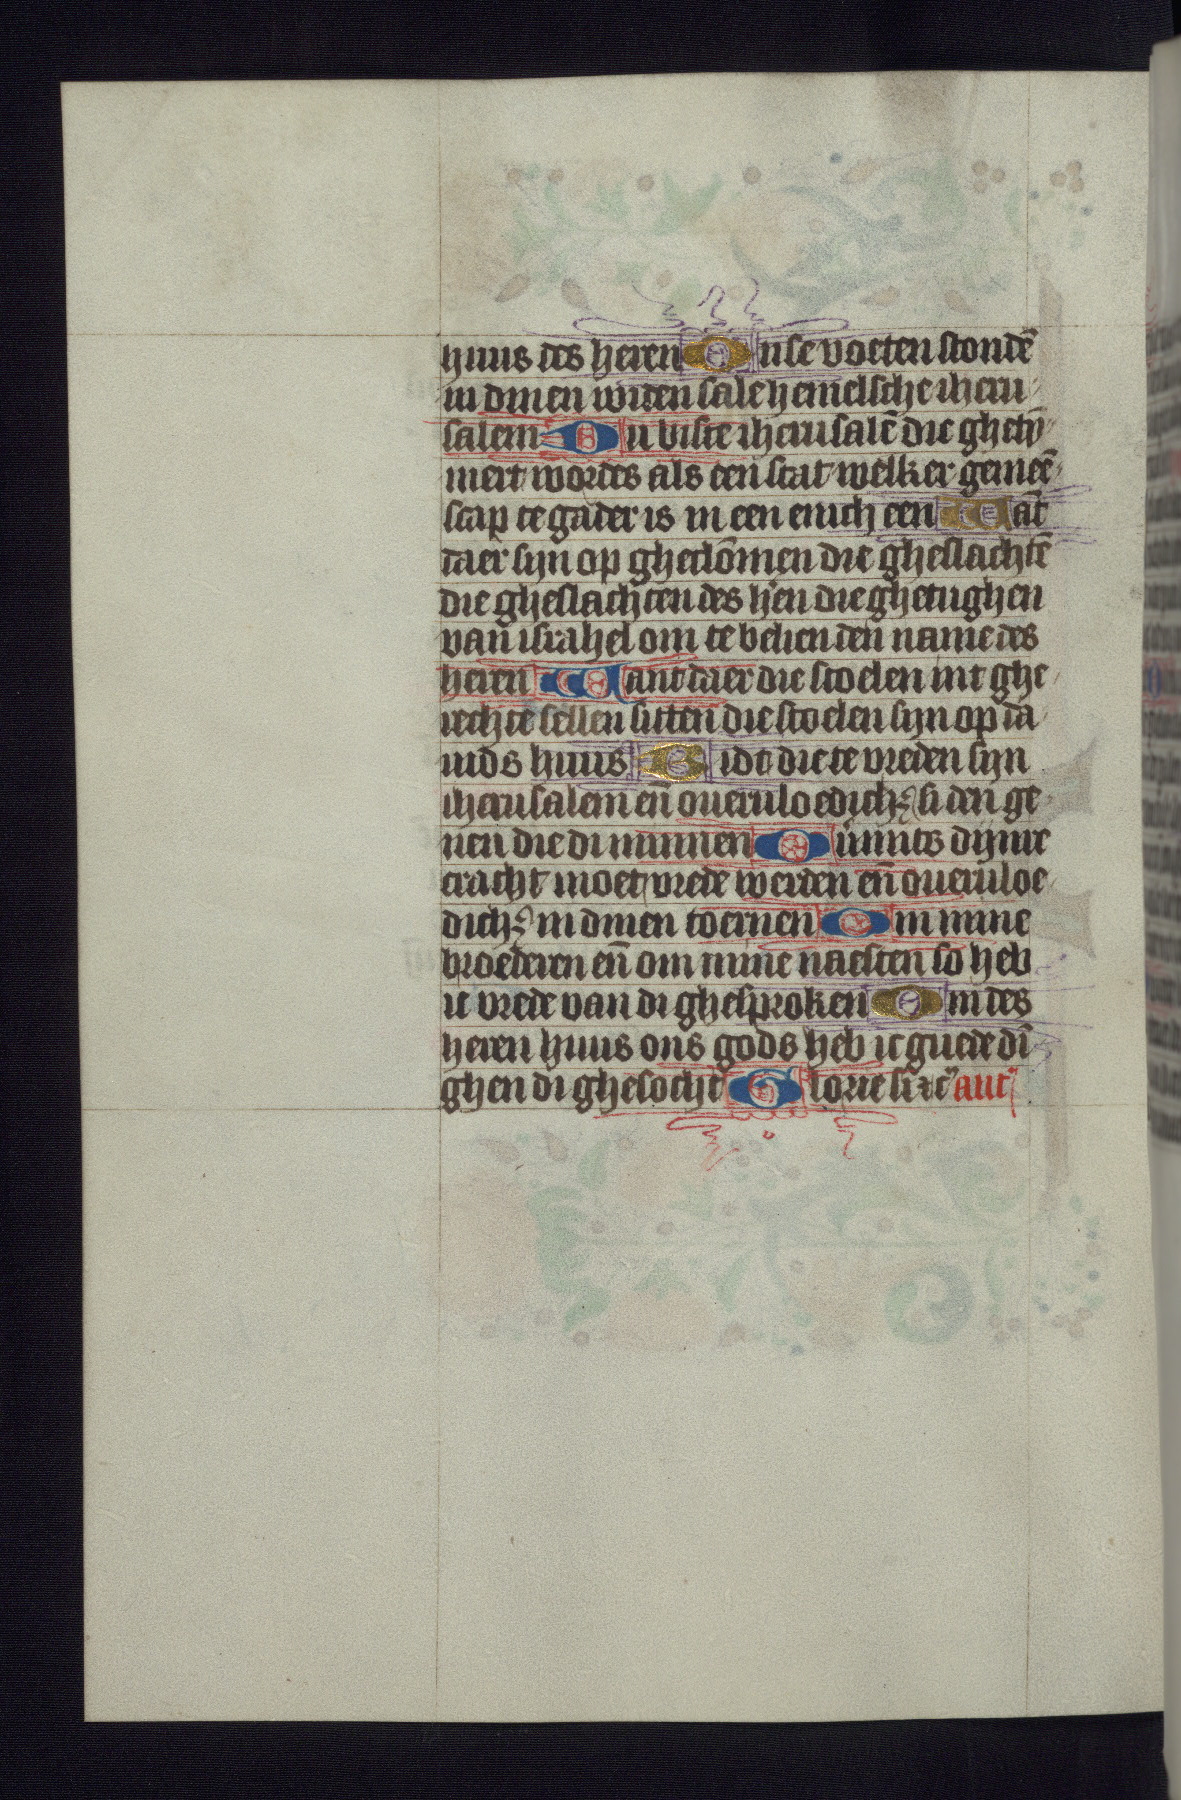 huus des heren Onse voeten stondē
in dinen widen sale hemelsche iheru
salem Du biste iherusalē die ghetȳ
mert wordes als een stat welker gemeē
scap te gader is in een enich een Wāt
daer sijn op gheclōmen die gheslachtē
die gheslachten des hēn die ghetughen
van israhel om te belien den name des
heren Want daer die stoelen int ghe
rechte sellen sitten die stoelen sijn op da
uids huus Bidt die te vreden sijn
iherusalem eñ oueruloedich₃ si den ge
nen die di minnen Ouimits dijnre
cracht moet vrede werden eñ oueruloe
dich₃ in dinen toernen Om mine
broederen eñ om mine naesten so heb
ic vrede van di ghesproken Om des
heren huus ons gods heb ic guede dī
ghen di ghesocht Glorie si ꝛc̃ ant